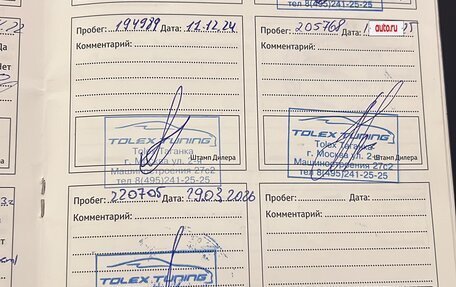 Пробег: 194989 Дата: 12.12.24
Комментарий:
TOLEX TUNING
Tolex Таганка
г. Москва ул. 2-я
Машиностроения 27с2
тел 8(495)241-25-25
Штамп Дилера
тел 8(495)241-25-25
Пробег: 205768 Дата:
auto.ru
Комментарий:
TOLEX TUNING
Tolex Таганка
г. Москва ул. 2-я
Машиностроения 27с2
тел 8(495)241-25-25
Штамп Дилера
Пробег: 220705 Дата: 29.03.2026
Комментарий:
TOLEX TUNING
Пробег: Дата:
Комментарий: